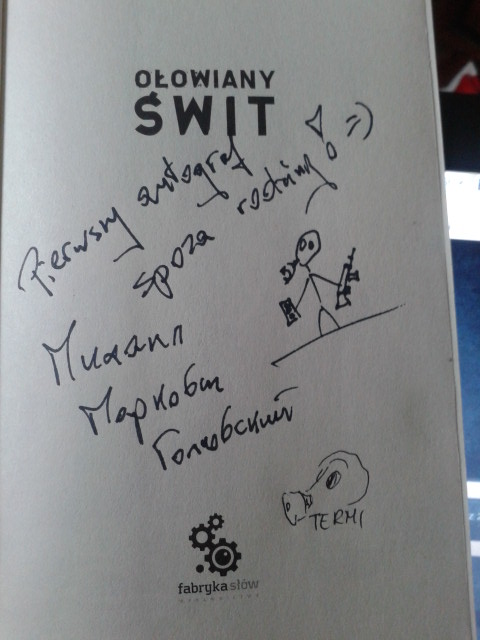 OŁOWIANY
ŚWIT
Pierwszy autograf
spoza rodziny! =)
Михаил
Маркович
Голковский
TERMI
fabryka słów
WYDAWNICTWO